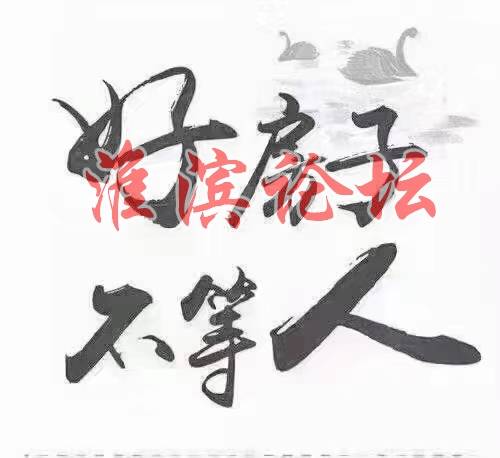 好房子
淮滨论坛
不等人